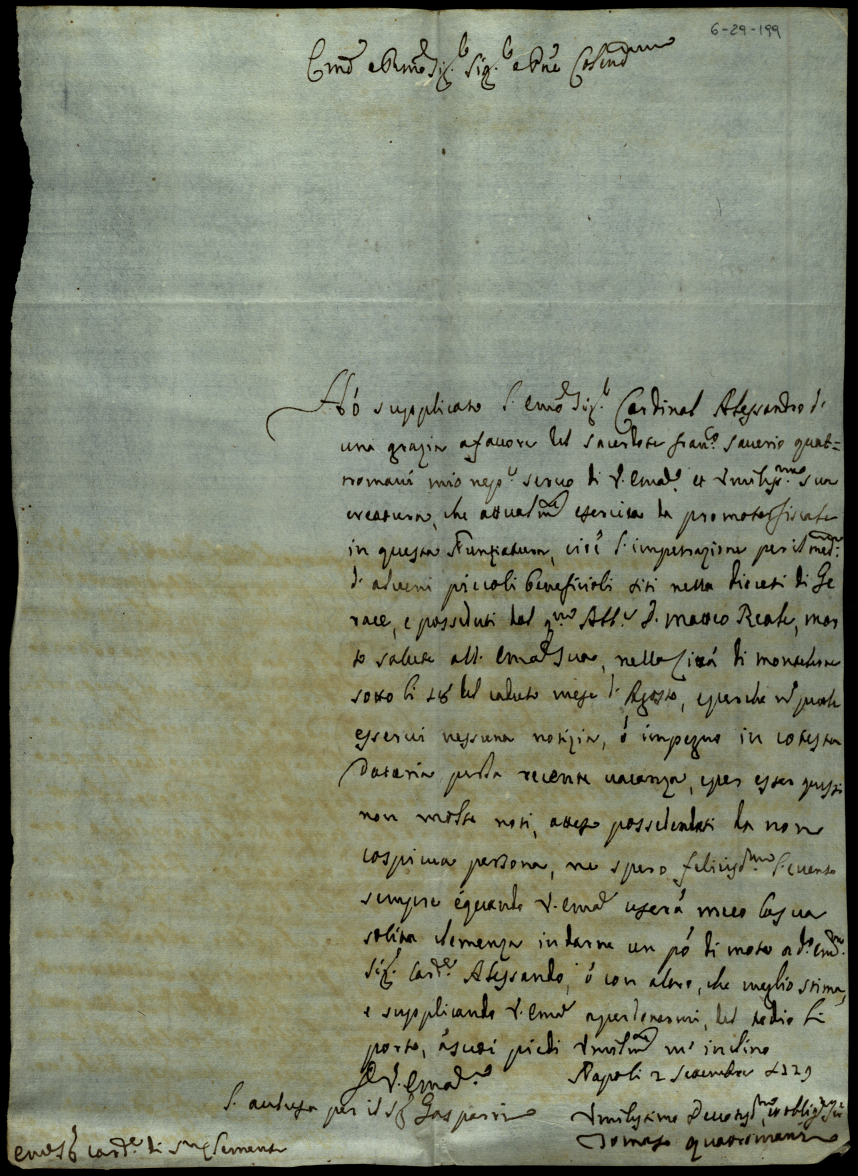 6-29-199
Em̃o e Rmo Sig.r Sig.r e Pñe Colmo
Hò supplicato l'Emo Sig.r Cardinal Alessandro di
una grazia a favore del sacerdote Fran.co Saverio quat=
tromani mio nep.e servo di V. Emza et Umiliss.mo sua
creatura, che attualm.te esercita la promotorfiscale
in questa Nunziatura, cioè l'impetrazione per il med.mo
d'alcuni piccoli beneficioli siti nella diocesi di Ge
race, e posseduti dal qm Abb.e D. Matteo Reale, mor
to salute all'Emza Sua, nella Città di Monteleone
sotto li 28 del caduto mese d'Agosto, e perche nõ puole
esservi nessuna notizia, ò impegno in cotesta
Dataria p la recente vacanza, e per esser questi
non molto noti, attesi possedendoli la non
cospicua persona, ne spero feliciss.mo l'evento
sempre è quando V. Emza userà meco la sua
solita clemenza in darne un pò di moto ad. Em.mo
Sig.r Card.le Alessandro, ò con altro, che meglio stima,
e supplicando V. Emza a perdonarmi, del tedio li
porto, à suoi piedi Umilm.te m'inchino
D V. Emza
Napoli 2 Settembre 1729
S. per il S.r Gasparri
Umilissimo Devotiss.mo et obblig.mo Ser
Tomaso quattromani
Em.o S.r Card.le di S. Clemente